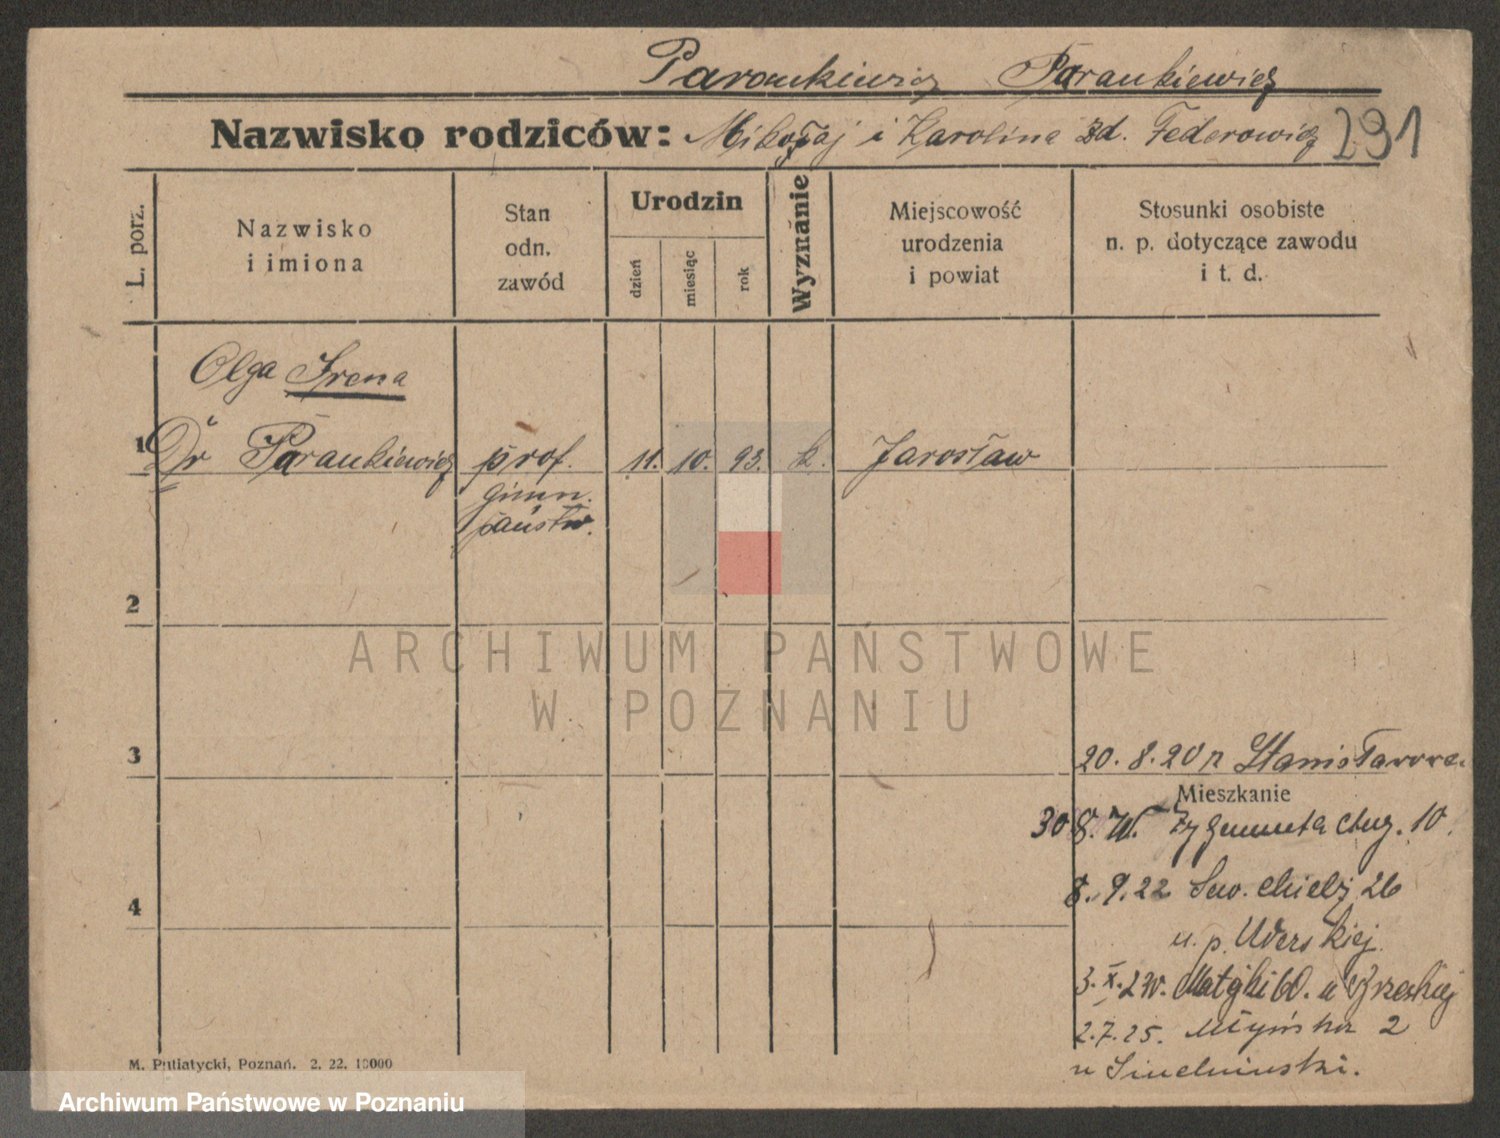 Parankiewicz Parankiewicz
Nazwisko rodziców: Mikołaj i Karolina zd. Federowicz 291
L. porz.
Nazwisko
i imiona
Stan
odn.
zawód
Urodzin
dzień
miesiąc
rok
Wyznanie
Miejscowość
urodzenia
i powiat
Stosunki osobiste
n. p. dotyczące zawodu
i t. d.
Olga Irena
1 Dr Parankiewicz prof. 11. 10. 93. k. Jarosław
gimn.
państw.
2
3
20. 8. 20 z Stanisławowa
Mieszkanie
30 8. W. Zygmunta Aug. 10.
4
8. 9. 22 26
u. p.
3. X. 2 W. Matejki 60. u
2. 7. 25. Młyńska 2
u
M. Putiatycki, Poznań. 2. 22. 10000
ARCHIWUM PAŃSTWOWE
W POZNANIU
Archiwum Państwowe w Poznaniu